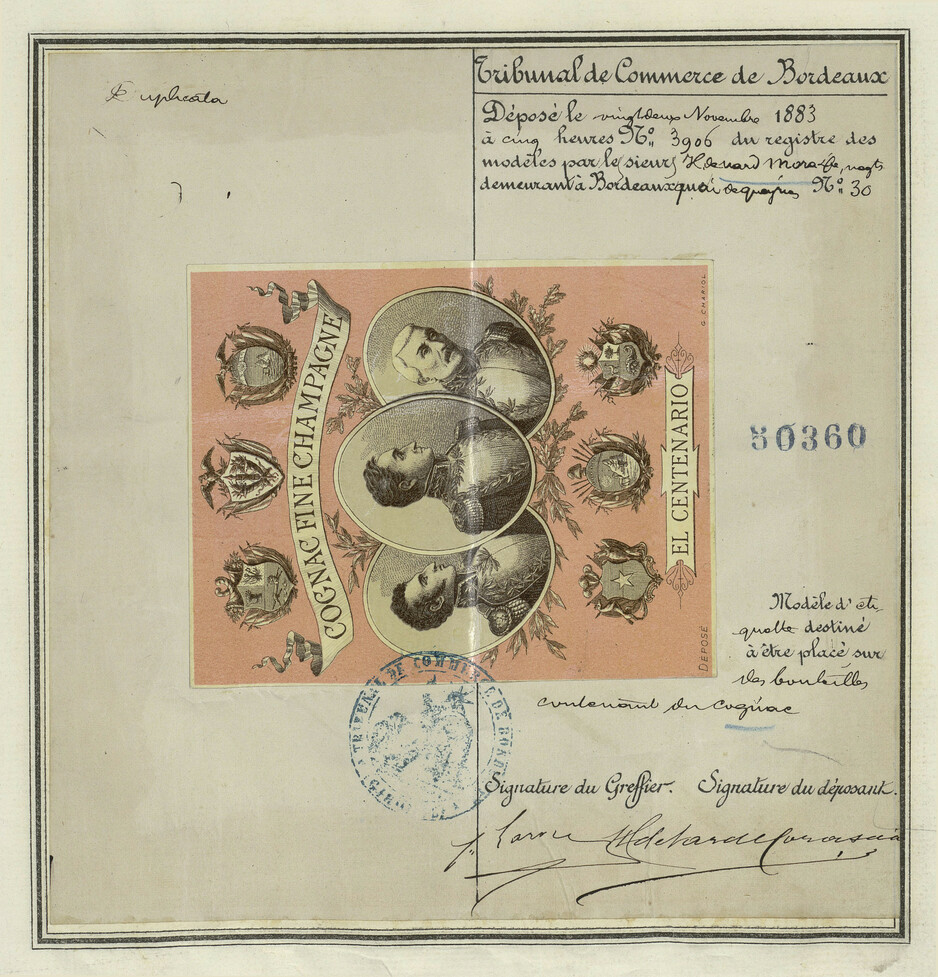 Duplicata
Tribunal de Commerce de Bordeaux
Déposé le vingt deux Novembre 1883
à cinq heures No. 3906 du registre des
modèles par le sieur
demeurant à Bordeaux quai de No. 30
COGNAC FINE CHAMPAGNE
EL CENTENARIO
G. CHARIOL
DEPOSÉ
50360
Modèle d'éti-
quette destiné
à être placé sur
des bouteilles
contenant du cognac
TRIBUNAL DE COMMERCE DE BORDEAUX
Signature du Greffier. Signature du déposant.